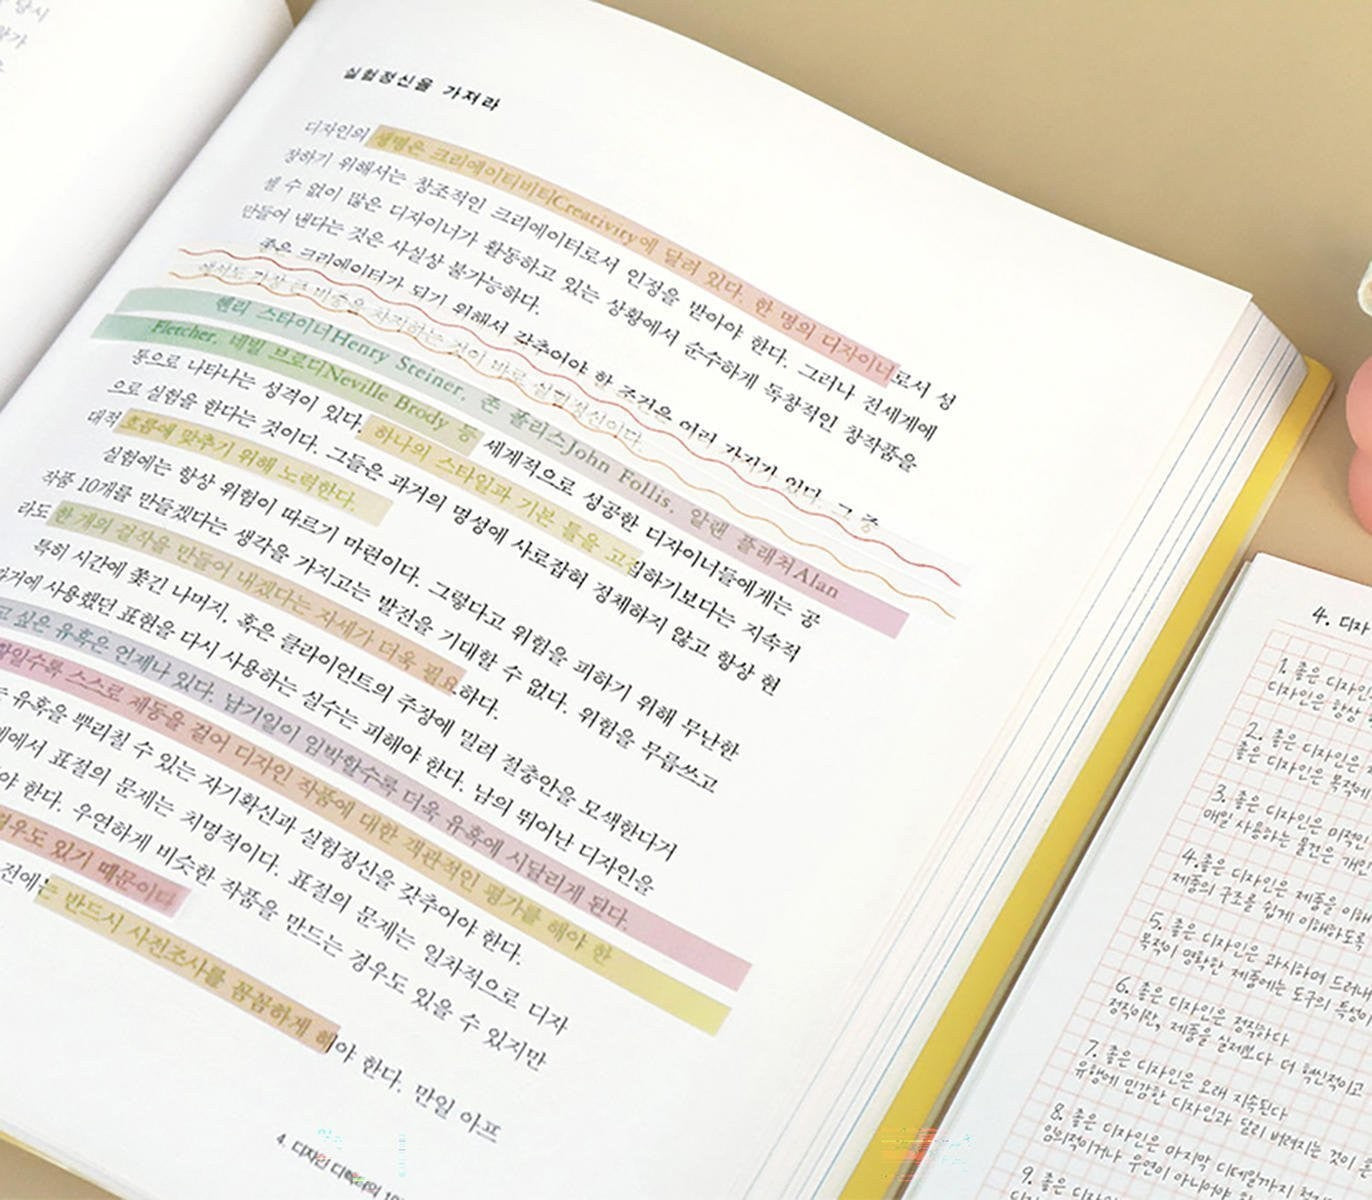 당시
실험정신을 가져라
디자인의 생명은 크리에이티비티Creativity에 달려 있다. 한 명의 디자이너로서 성
장하기 위해서는 창조적인 크리에이터로서 인정을 받아야 한다. 그러나 전세계에
셀 수 없이 많은 디자이너가 활동하고 있는 상황에서 순수하게 독창적인 창작품을
만들어 낸다는 것은 사실상 불가능하다.
좋은 크리에이터가 되기 위해서 갖추어야 할 조건은 여러 가지가 있다. 그 중
에서도 가장 큰 비중을 차지하는 것이 바로 실험정신이다.
헨리 스타이너Henry Steiner, 존 폴리스John Follis, 알랜 플래처Alan
Fletcher, 네빌 브로디Neville Brody 등 세계적으로 성공한 디자이너들에게는 공
통으로 나타나는 성격이 있다. 하나의 스타일과 기본 틀을 고집하기보다는 지속적
으로 실험을 한다는 것이다. 그들은 과거의 명성에 사로잡혀 정체하지 않고 항상 현
대적 흐름에 맞추기 위해 노력한다.
실험에는 항상 위험이 따르기 마련이다. 그렇다고 위험을 피하기 위해 무난한
작품 10개를 만들겠다는 생각을 가지고는 발전을 기대할 수 없다. 위험을 무릅쓰고
라도 한 개의 걸작을 만들어 내겠다는 자세가 더욱 필요하다.
특히 시간에 쫓긴 나머지, 혹은 클라이언트의 주장에 밀려 절충안을 모색한다거
과거에 사용했던 표현을 다시 사용하는 실수는 피해야 한다. 남의 뛰어난 디자인을
고 싶은 유혹은 언제나 있다. 납기일이 임박할수록 더욱 유혹에 시달리게 된다.
할수록 스스로 제동을 걸어 디자인 작품에 대한 객관적인 평가를 해야 한
유혹을 뿌리칠 수 있는 자기확신과 실험정신을 갖추어야 한다.
에서 표절의 문제는 치명적이다. 표절의 문제는 일차적으로 디자
야 한다. 우연하게 비슷한 작품을 만드는 경우도 있을 수 있지만
경우도 있기 때문이다
전에는 반드시 사전조사를 꼼꼼하게 해야 한다. 만일 아프
4. 디자인
4. 디자
1. 좋은 디자인
디자인은 항상
2. 좋은 디자인은
좋은 디자인은 목적에
3. 좋은 디자인은 미적인
매일 사용하는 물건은 개인
4. 좋은 디자인은 제품을 이해
제품의 구조를 쉽게 이해하도록
5. 좋은 디자인은 과시하며 드러내
목적이 명확한 제품에는 도구의 특성이
6. 좋은 디자인은 정직하다
정직이란, 제품을 실제보다 더 혁신적이고
7. 좋은 디자인은 오래 지속된다
유행에 민감한 디자인과 달리 버려지는 것이
8. 좋은 디자인은 마지막 디테일까지
임의적이거나 우연이 아니어야
9. 좋은 디자인은